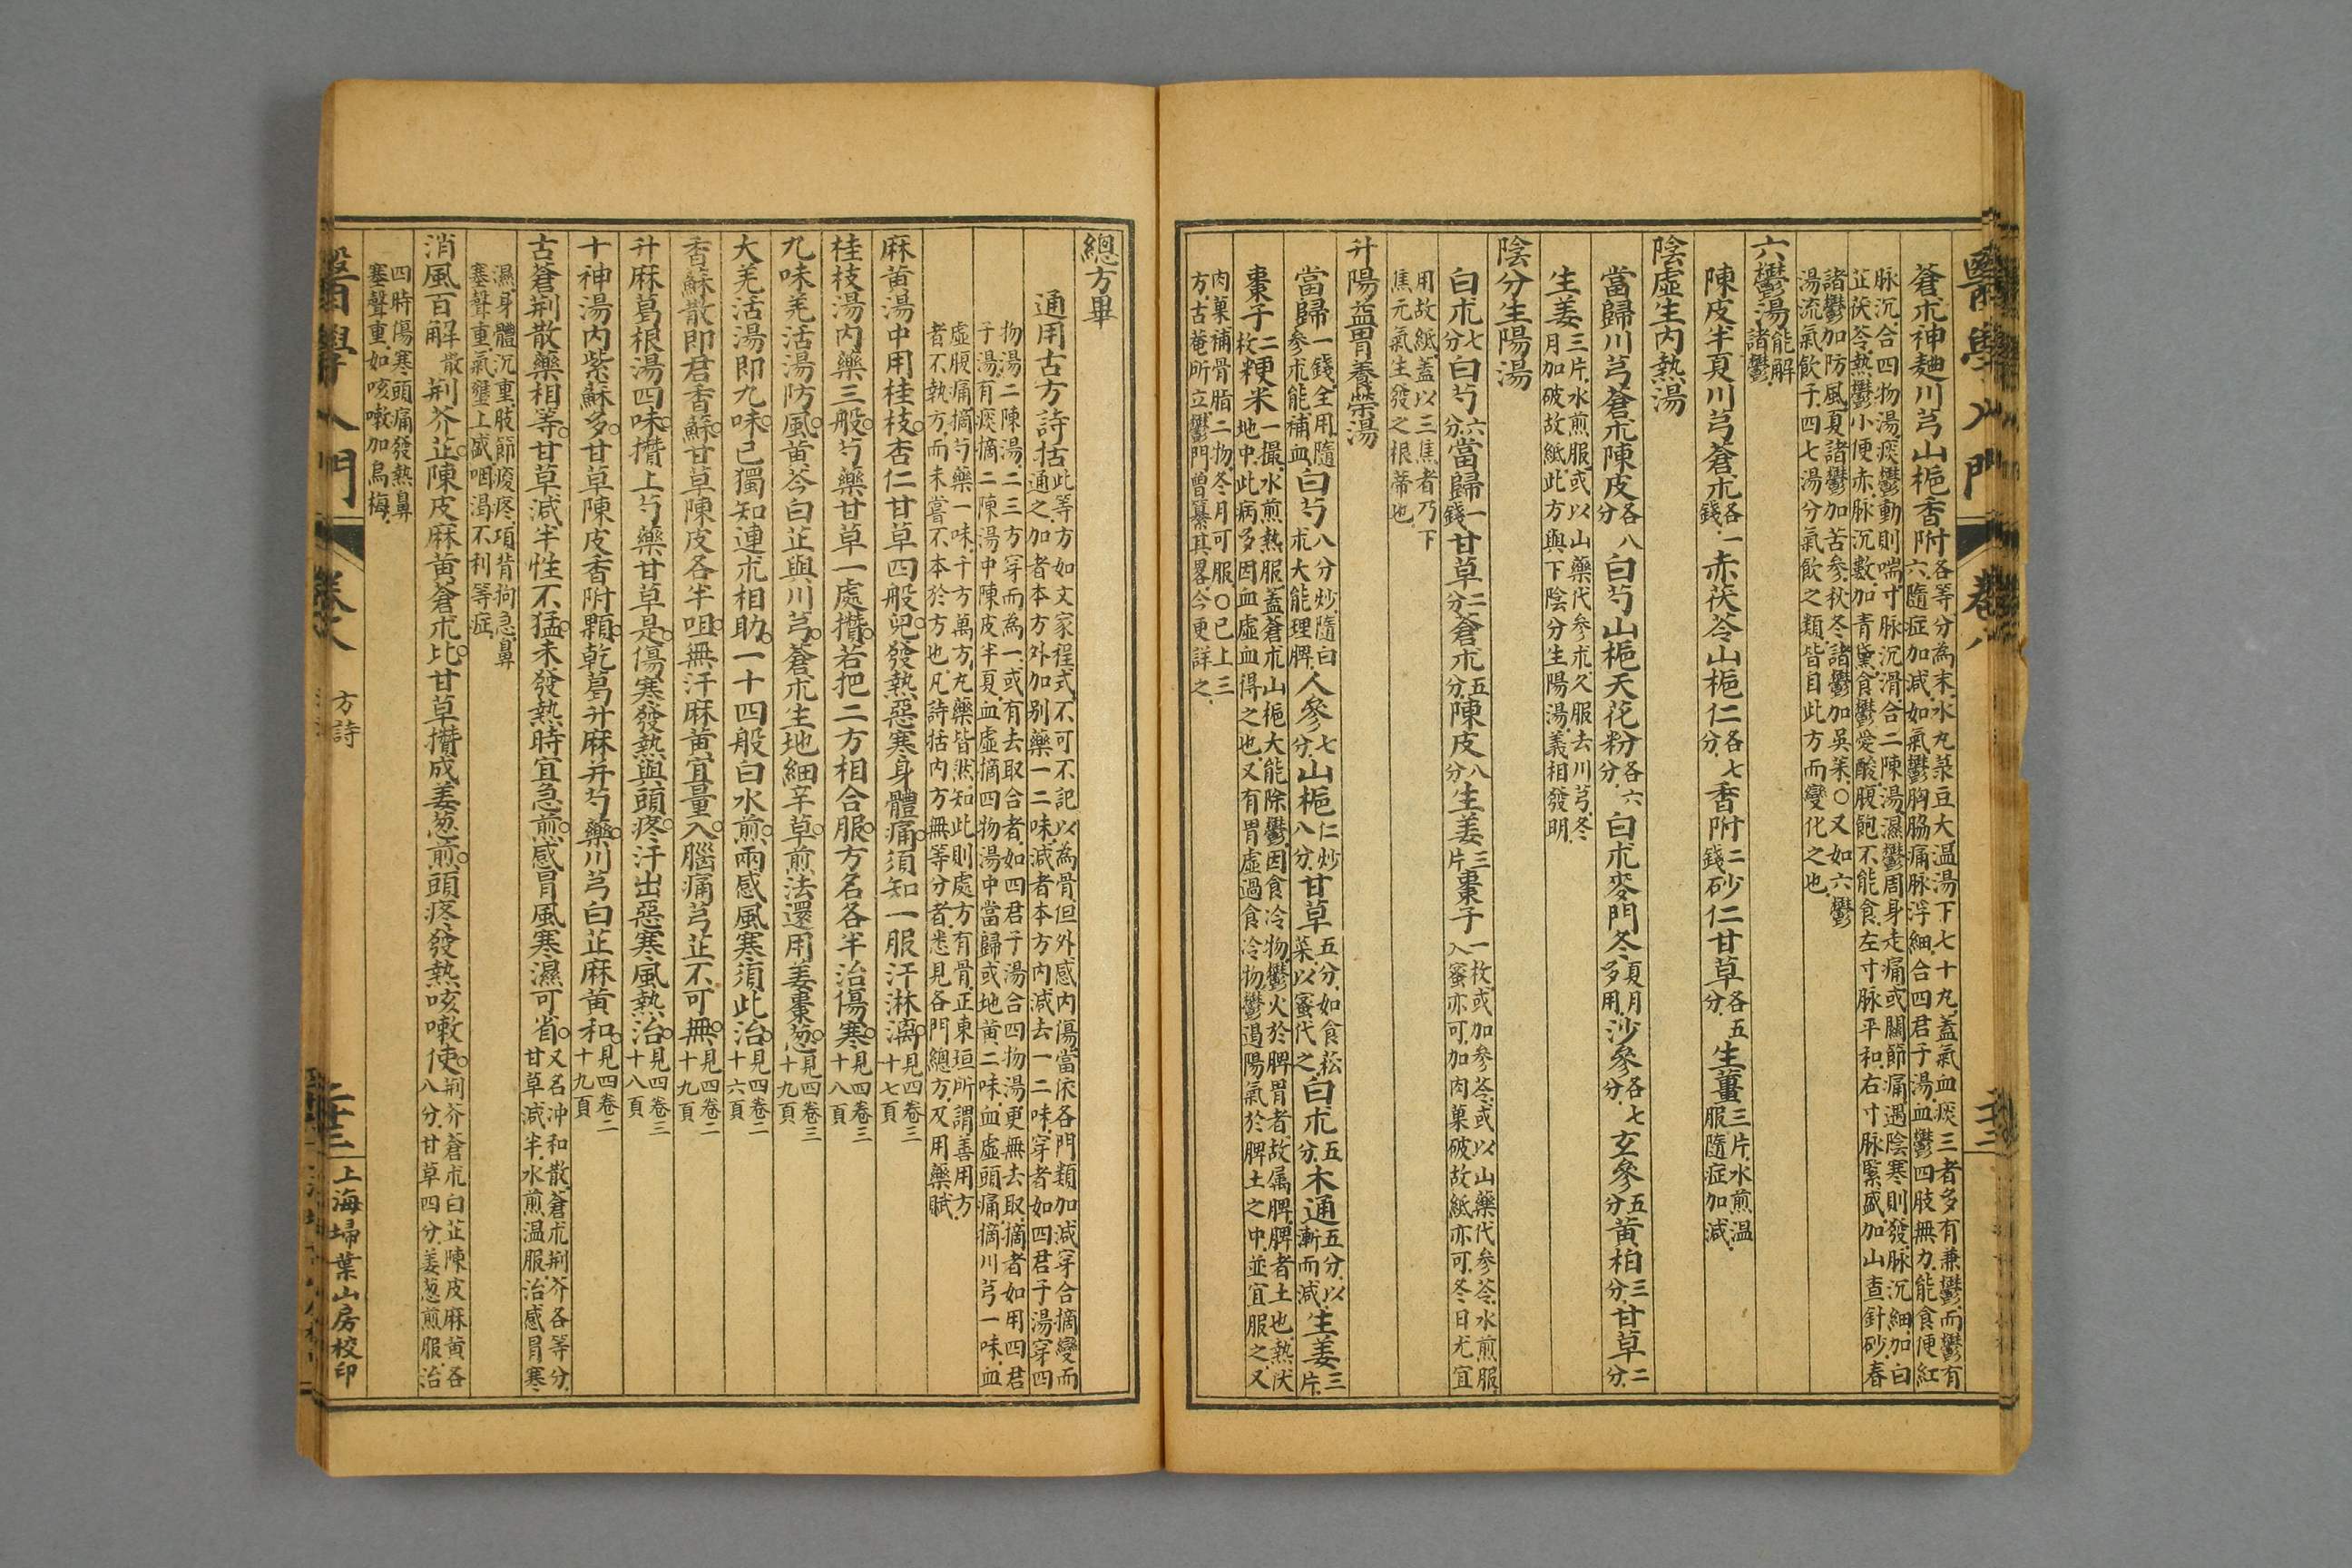 醫學入門
卷八
蒼朮神麯川芎山梔香附各等分為末水丸菉豆大溫湯下七十丸蓋氣血痰三者多有兼鬱而鬱有
六隨症加減如氣鬱胸脇痛脉浮細合四君子湯血鬱四肢無力能食便紅
脉沉合四物湯痰鬱動則喘寸脉沉滑合二陳湯濕鬱周身走痛或關節痛遇陰寒則發脉沉細加白
芷茯苓熱鬱小便赤脉沉數加青黛食鬱愛酸腹飽不能食左寸脉平和右寸脉緊盛加山查針砂春
諸鬱加防風夏諸鬱加苦參秋冬諸鬱加吳茱○又如六鬱
湯流氣飲子四七湯分氣飲之類皆自此方而變化之也
六鬱湯能解諸鬱
陳皮半夏川芎蒼朮各一錢赤茯苓山梔仁各七分香附二錢砂仁甘草各五分生薑三片水煎溫服隨症加減
陰虛生內熱湯
當歸川芎蒼朮陳皮各八分白芍山梔天花粉各六分白朮麥門冬夏月多用沙參各七分玄參五分黃柏三分甘草二分
生姜三片水煎服或以山藥代參朮久服去川芎冬月加破故紙此方與下陰分生陽湯義相發明
陰分生陽湯
白朮七分白芍六分當歸一錢甘草二分蒼朮五分陳皮八分生姜三片棗子一枚或加參苓或以山藥代參苓水煎服入蜜亦可加肉菓破故紙亦可冬日尤宜
用故紙蓋以三焦者乃下
焦元氣生發之根蒂也
升陽益胃養榮湯
當歸一錢全用隨參朮能補血白芍八分炒隨白朮大能理脾人參七分山梔仁炒八分甘草五分如食菘菜以蜜代之白朮五分木通五分以漸而減生姜三片
棗子二枚粳米一撮水煎熱服蓋蒼朮山梔大能除鬱因食冷物鬱火於脾胃者故屬脾脾者土也熱伏
地中此病多因血虛血得之也又有胃虛過食冷物鬱遏陽氣於脾土之中並宜服之又
肉菓補骨脂二物冬月可服○已上三
方古菴所立鬱門曾纂其畧今更詳之
總方畢
通用古方詩括此等方如文家程式不可不記以為骨但外感內傷當依各門類加減穿合摘變而
通之加者本方外加別藥一二味減者本方內減去一二味穿者如四君子湯穿四
物湯二陳湯二三方穿而為一或有去取合者如四君子湯合四物湯更無去取摘者如用四君
子湯有痰摘二陳湯中陳皮半夏血虛摘四物湯中當歸或地黃二味血虛頭痛摘川芎一味血
虛腹痛摘芍藥一味千方萬方丸藥皆然知此則處方有骨正東垣所謂善用方
者不執方而未嘗不本於方也凡詩括內方無等分者悉見各門總方及用藥賦
麻黃湯中用桂枝杏仁甘草四般兒發熱惡寒身體痛須知一服汗淋漓見四卷三十七頁
桂枝湯內藥三般芍藥甘草一處攢若把二方相合服方名各半治傷寒見四卷三十八頁
九味羌活湯防風黃芩白芷與川芎蒼朮生地細辛草煎法還用姜棗葱見四卷三十九頁
大羌活湯即九味已獨知連朮相助一十四般白水煎兩感風寒須此治見四卷二十六頁
香蘇散即君香蘇甘草陳皮各半咀無汗麻黃宜量入腦痛芎芷不可無見四卷二十九頁
升麻葛根湯四味攢上芍藥甘草是傷寒發熱與頭疼汗出惡寒風熱治見四卷三十八頁
十神湯內紫蘇多甘草陳皮香附顆乾葛升麻并芍藥川芎白芷麻黃和見四卷二十九頁
古蒼荊散藥相等甘草減半性不猛未發熱時宜急煎感冒風寒濕可省又名冲和散蒼朮荊芥各等分甘草減半水煎溫服治感冒寒
濕身體沉重肢節痠疼項背拘急鼻
塞聲重氣壅上盛咽渴不利等症
消風百解散荊芥芷陳皮麻黃蒼朮比甘草攢成姜葱煎頭疼發熱咳嗽使荊芥蒼朮白芷陳皮麻黃各八分甘草四分姜葱煎服治
四時傷寒頭痛發熱鼻
塞聲重如咳嗽加烏梅
醫學入門
卷八
方詩
二十三
上海埽葉山房校印